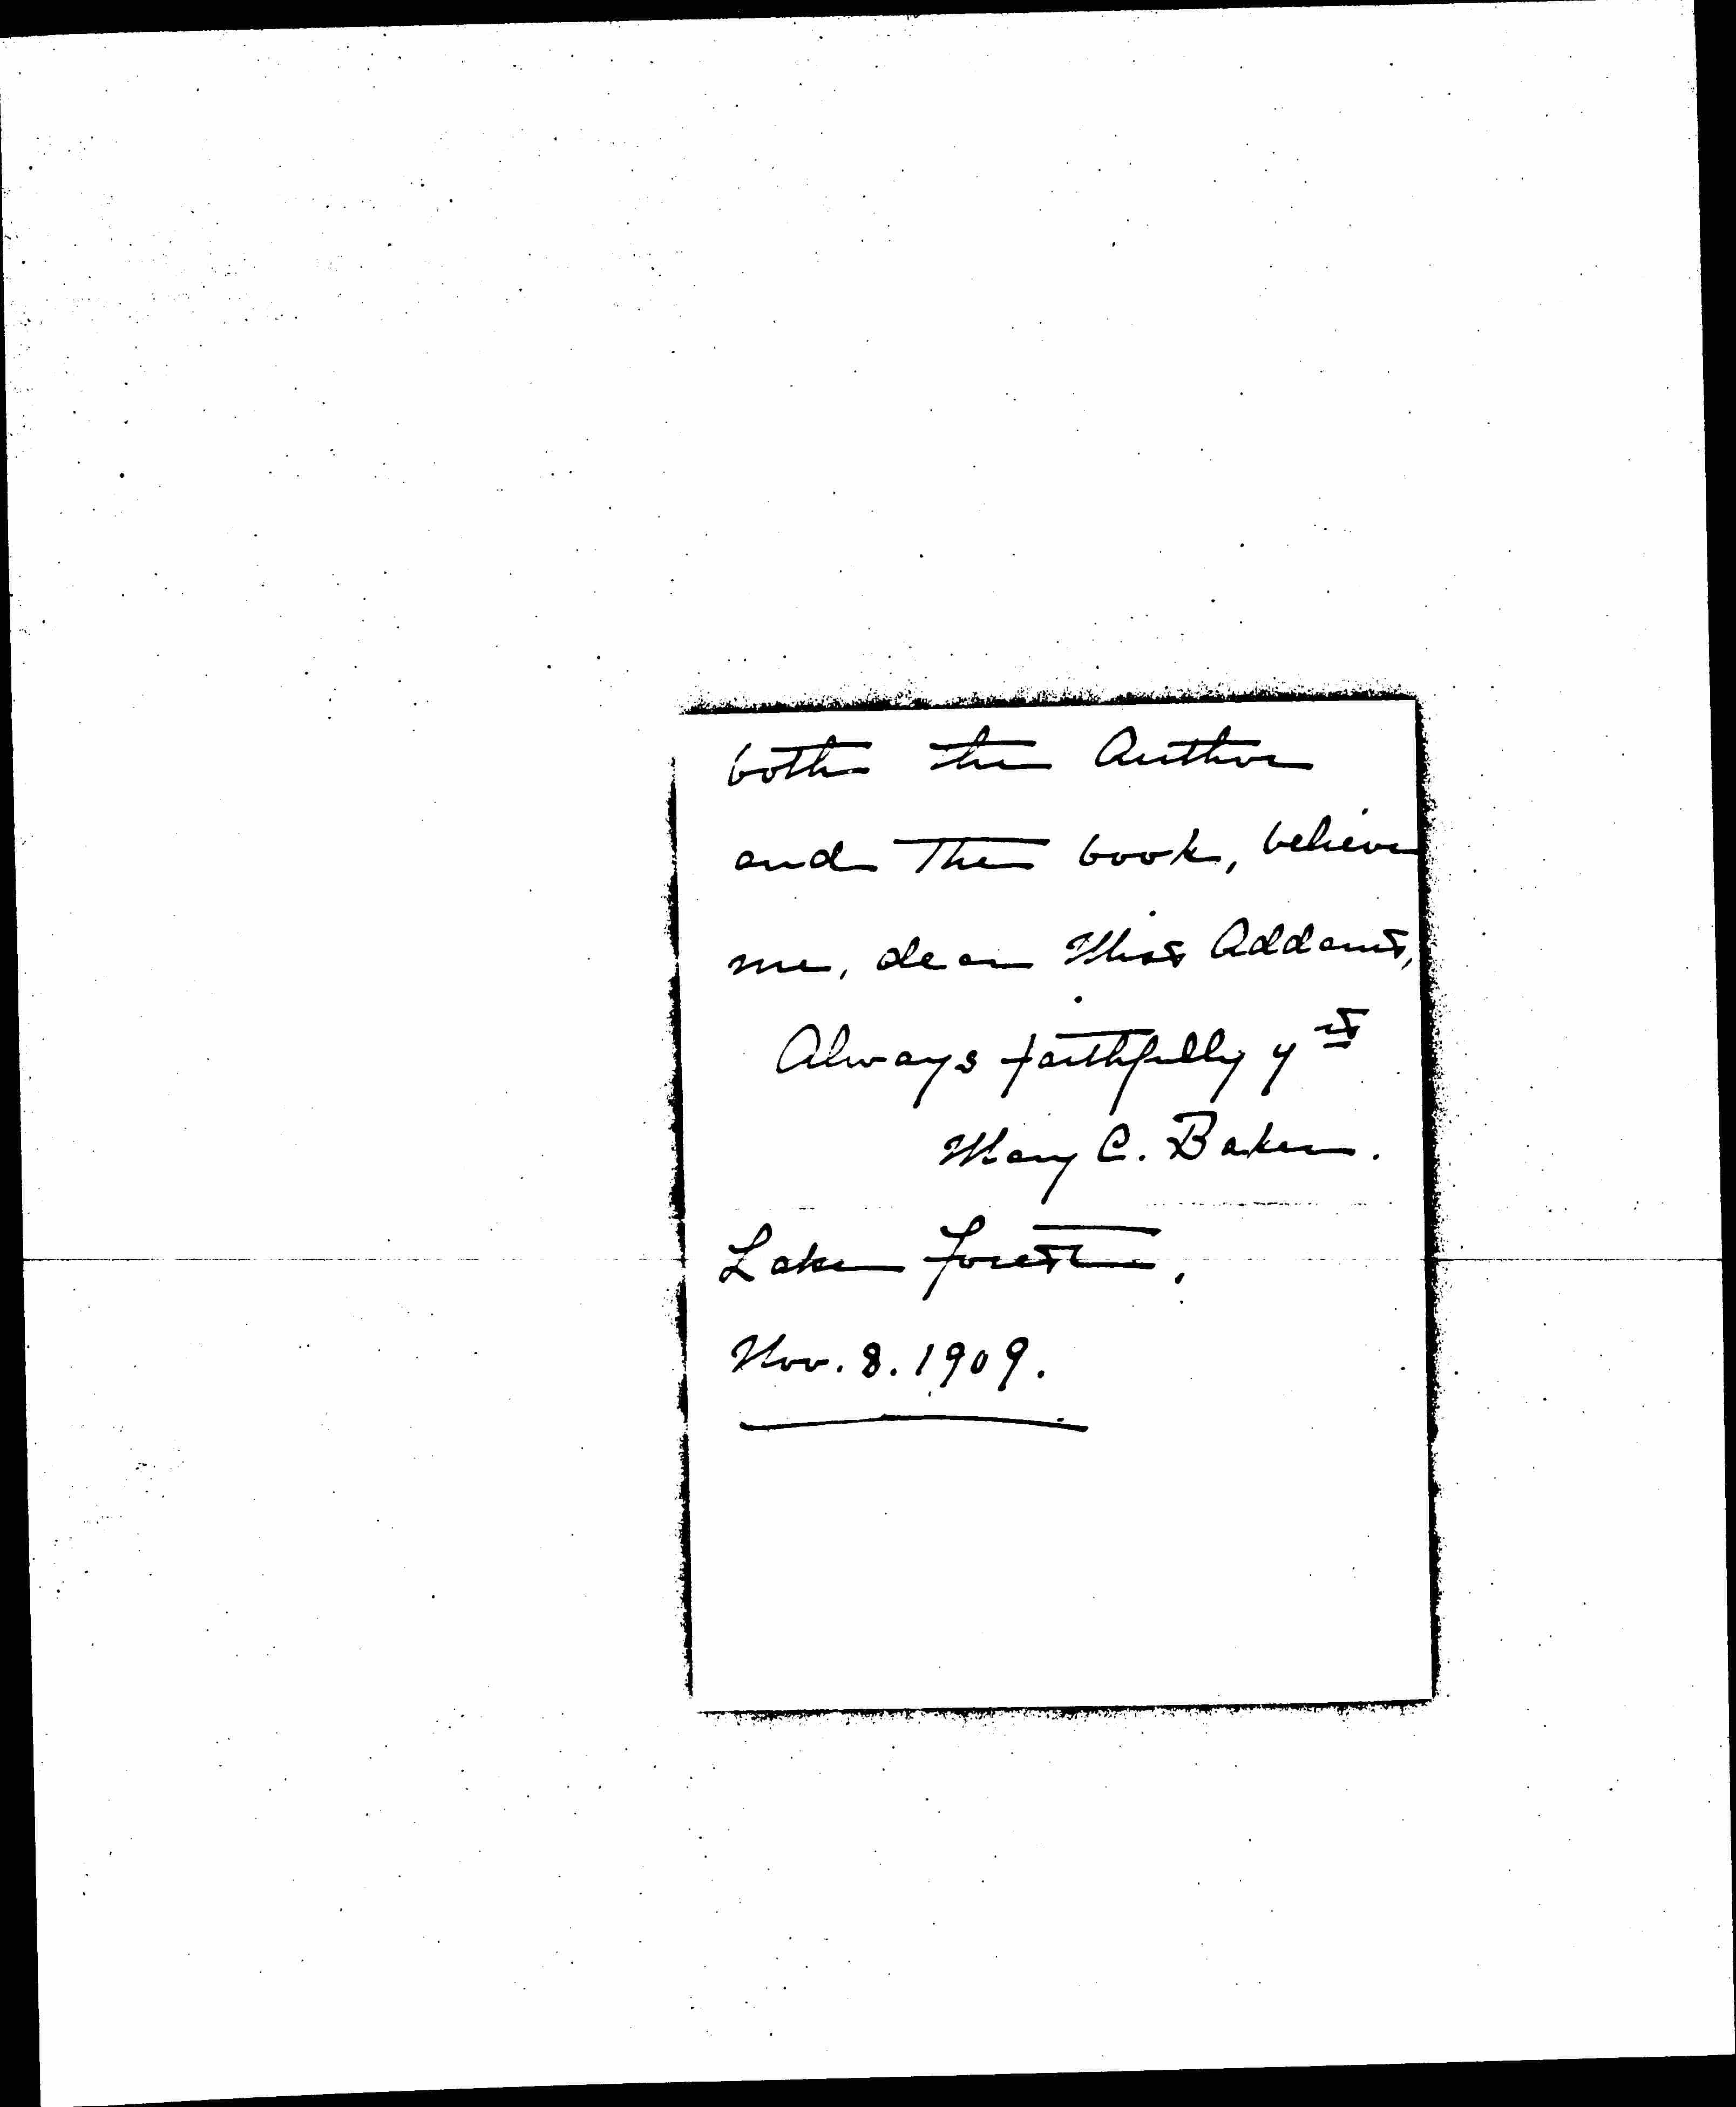 both the Author
and the book, believe
me, dear Miss Addams,
Always faithfully yrs
Mary C. Baker.
Lake Forest.
Nov. 8. 1909.